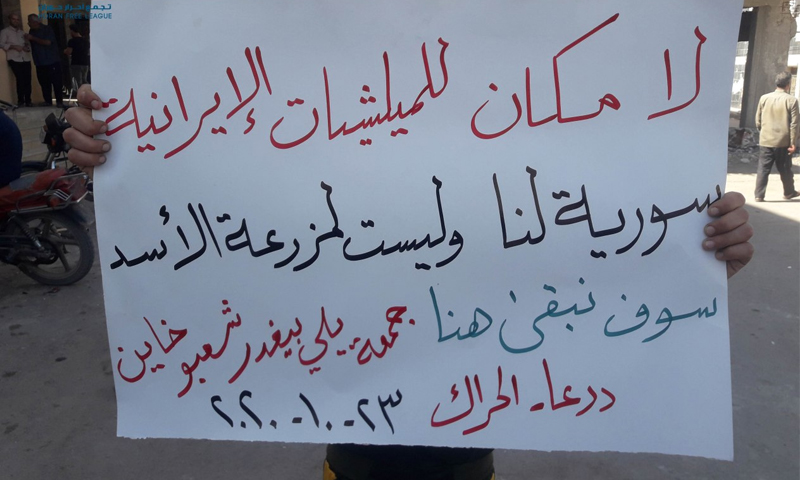 تجمع أحرار حوران
HORAN FREE LEAGUE
لا مكان للميلشيات الإيرانية
سورية لنا وليست لمزرعة الأسد
سوف نبقى هنا جمعة يلي بيغدر شعبو خاين
درعا - الحراك ٢٣-١٠-٢٠٢٠